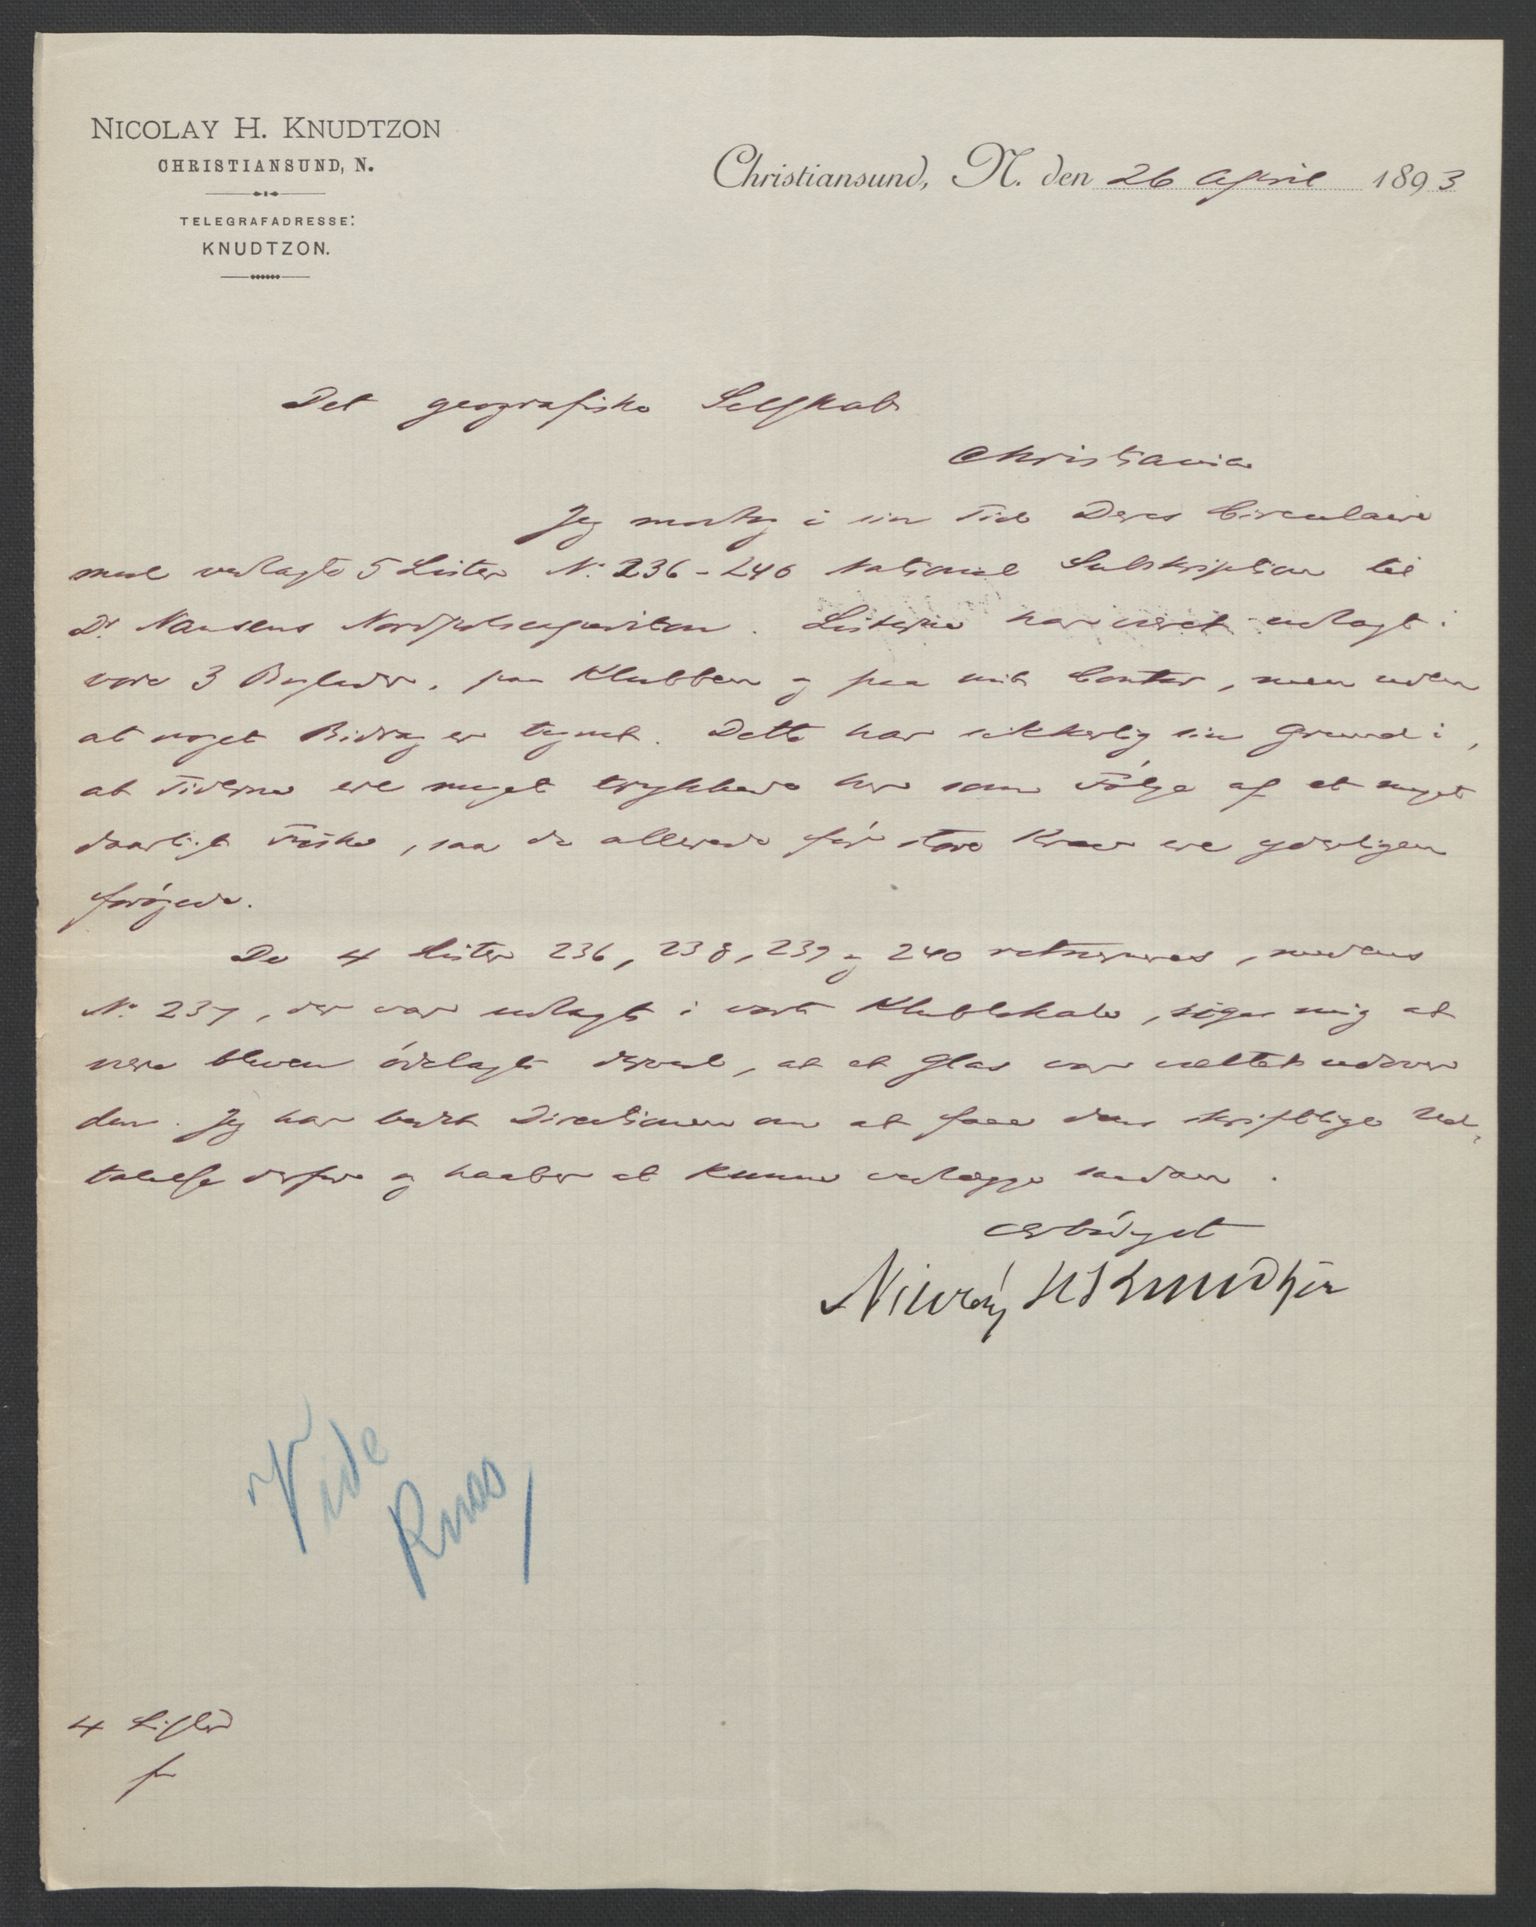 NICOLAY H. KNUDTZON
CHRISTIANSUND, N.
TELEGRAFADRESSE:
KNUDTZON.
Christiansund, N. den 26 April 1893
Det geografiske Selskab
Christiania
Jeg modtog i sin Tid Deres Circulaire
med vedlagte 5 Lister No. 236-240 National Subskription til
Dr Nansens Nordpolsexpedition. Listerne har været udlagt i
vore 3 Boglader, paa Klubben og paa mit Contor, men uden
at noget Bidrag er tegnet. Dette har sikkerlig sin Grund i,
at Tiderne ere meget trykkede her som Følge af et meget
daarligt Fiske, saa de allerede før store Krav ere yderligere
forøgede.
De 4 Lister 236, 238, 239 og 240 returneres, medens
No. 237, der var udlagt i vort Klublokale, siges mig at
være bleven ødelagt derved, at et Glas var væltet udover
den. Jeg har bedt Directionen om at faae dens skriftlige Ud-
talelse derfor og haaber at kunne vedlægge saadan.
Ærbødigst
Nicolay H Knudtzon
Vide
4 Lister